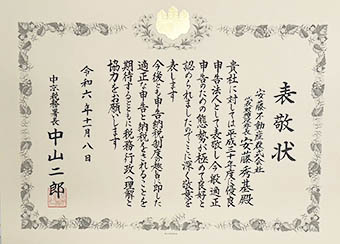 表敬状
安藤不動産株式会社
代表取締役 安藤秀基殿
貴社に対しては平成三十年度優良
申告法人として表敬し今般適正
申告のための態勢が極めて良好と
認められましたのでここに深く敬意を
表します
今後とも申告納税制度の趣旨に即した
適正な申告と納税をされることを
期待するとともに税務行政へ理解と
協力をお願いします
令和六年十一月八日
中京税務署長 中山二郎